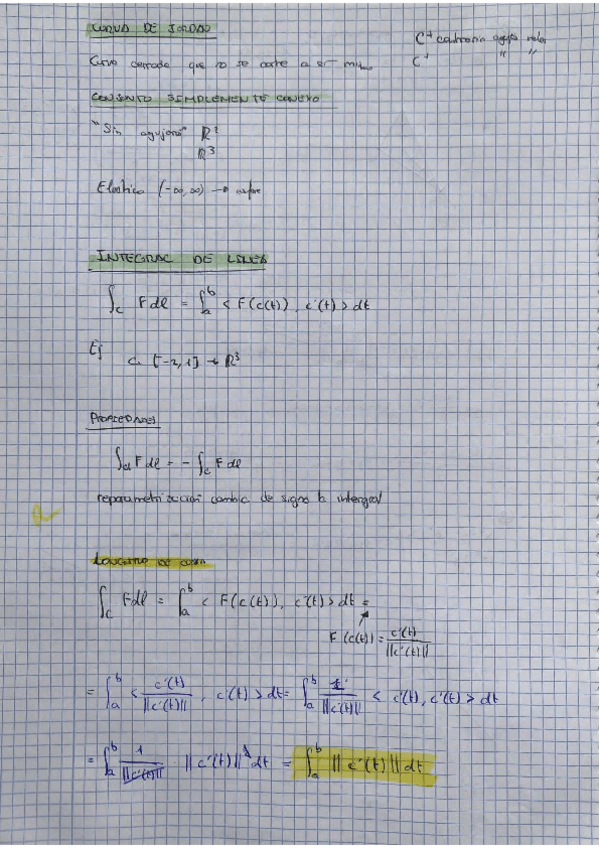 CURVA DE JORDAN
C⁺ contrario agujas reloj
C⁺ " "
Curva cerrada que no se corte a sí misma
CONJUNTO SIMPLEMENTE CONEXO
"Sin agujeros" ℝ²
ℝ³
Elástico (-∞,∞) →
INTEGRAL DE LÍNEA
∫_c F dl = ∫_a^b < F(c(t)), c'(t) > dt
Ej
c: [-2,1] → ℝ³
PROPIEDADES
∫_d F dl = - ∫_c F dl
reparametrización cambia de signo la integral
LONGITUD DE CURVA
∫_c F dl = ∫_a^b < F(c(t)), c'(t) > dt =
F(c(t)) = c'(t) / ||c'(t)||
= ∫_a^b < c'(t) / ||c'(t)||, c'(t) > dt = ∫_a^b 1 / ||c'(t)|| < c'(t), c'(t) > dt
= ∫_a^b 1 / ||c'(t)|| ||c'(t)||² dt = ∫_a^b ||c'(t)|| dt